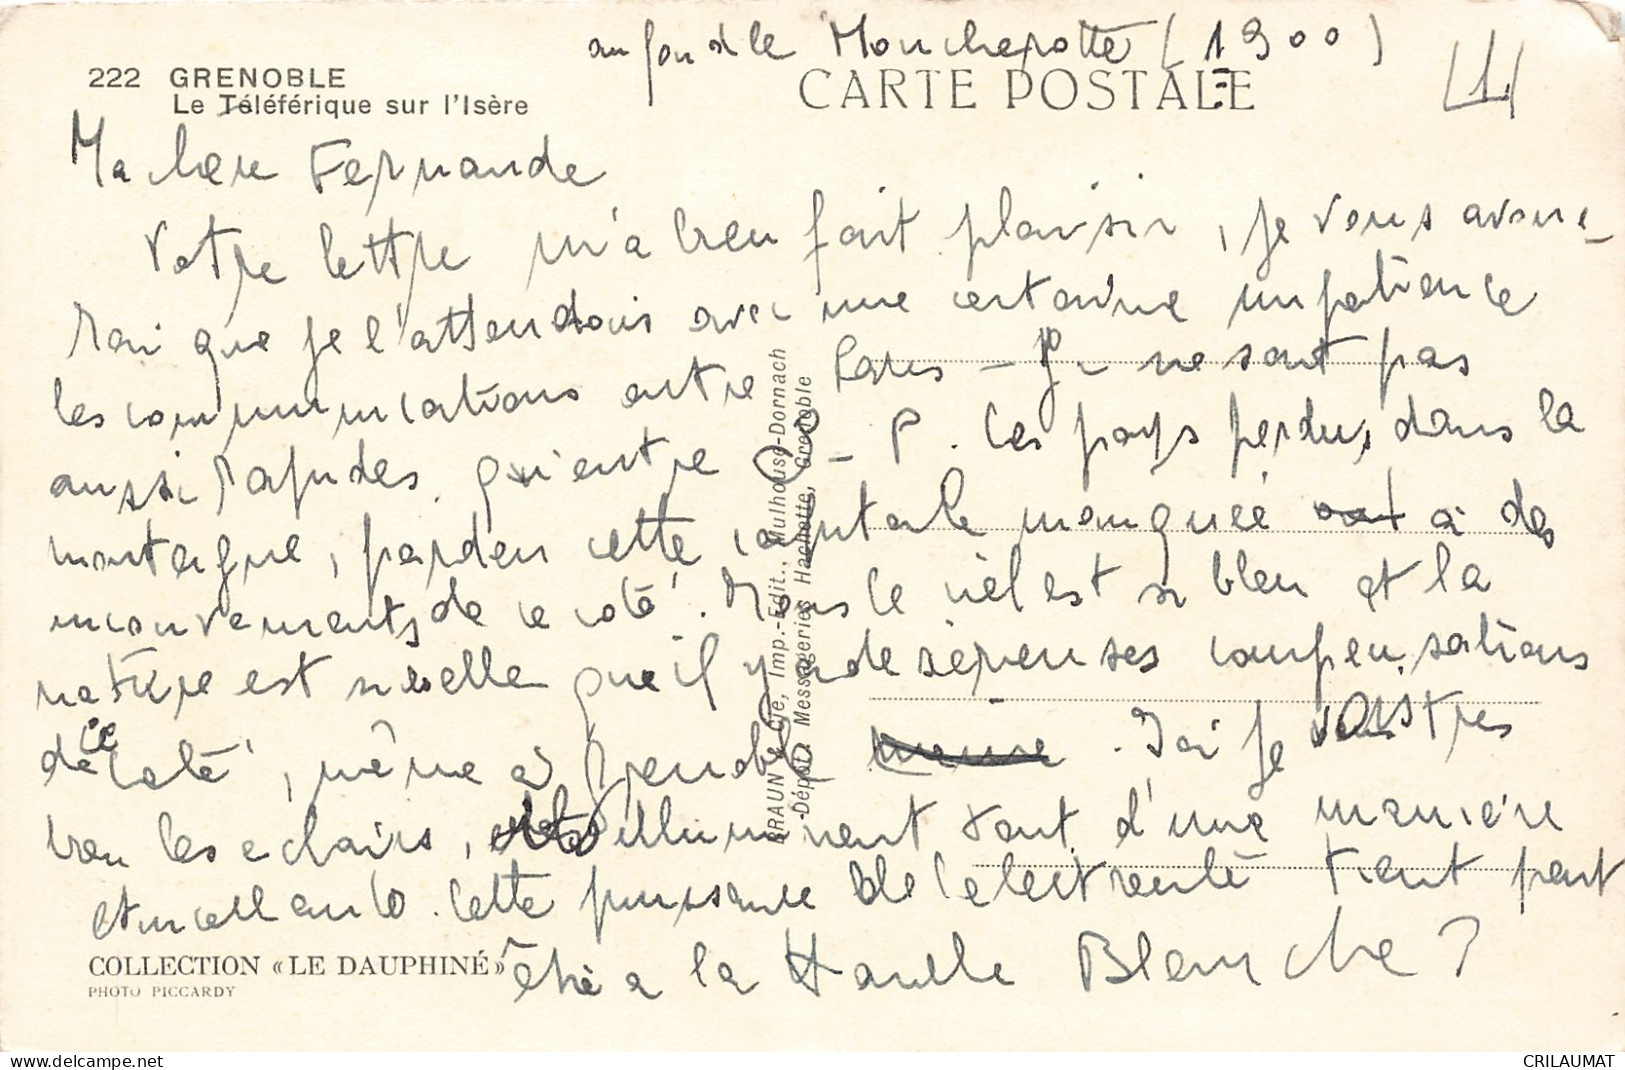 au fond le Moucherotte (1900)
222 GRENOBLE
Le Téléférique sur l'Isère
CARTE POSTALE
(1)
Ma chère Fernande
Votre lettre m'a bien fait plaisir, je vous avoue-
rai que je l'attendais avec une certaine impatience
les communications entre Paris - Gr ne sont pas
aussi rapides qu'entre - P. Ces pays perdus, dans la
montagne, perden cette capitale manquée a des
inconvements de ce coté. Mais le ciel est si bleu et la
nature est si belle que il y a de serieuses compensations
de ce coté, même à Grenoble. J'ai je vois tres
bien les eclairs, illuminent tout d'une manière
etincellante. Cette puissance de l'electricité tient peut
être a la Houille Blanche ?
COLLECTION « LE DAUPHINÉ »
PHOTO PICCARDY
BRAUN & Cie, Imp.-Edit., Mulhouse-Dornach
Dépôt : Messageries Hachette, Grenoble
www.delcampe.net
CRILAUMAT